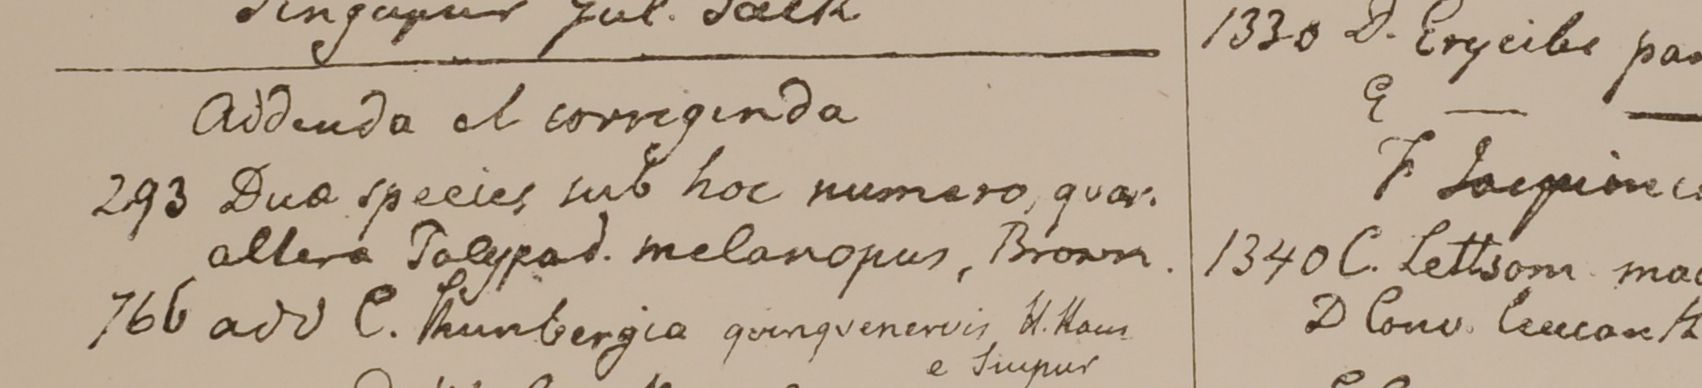 Singapur Jul. Jack
Addenda et corrigenda
293 Duae species sub hoc numero, quar.
altera Polypod. melanopus, Brown.
766 add C. Thunbergia quinquenervis H. Ham
e Sucpur
1330 D. Erycibe pa
E — —
F
1340 C. Lettsom mac
D Conv.